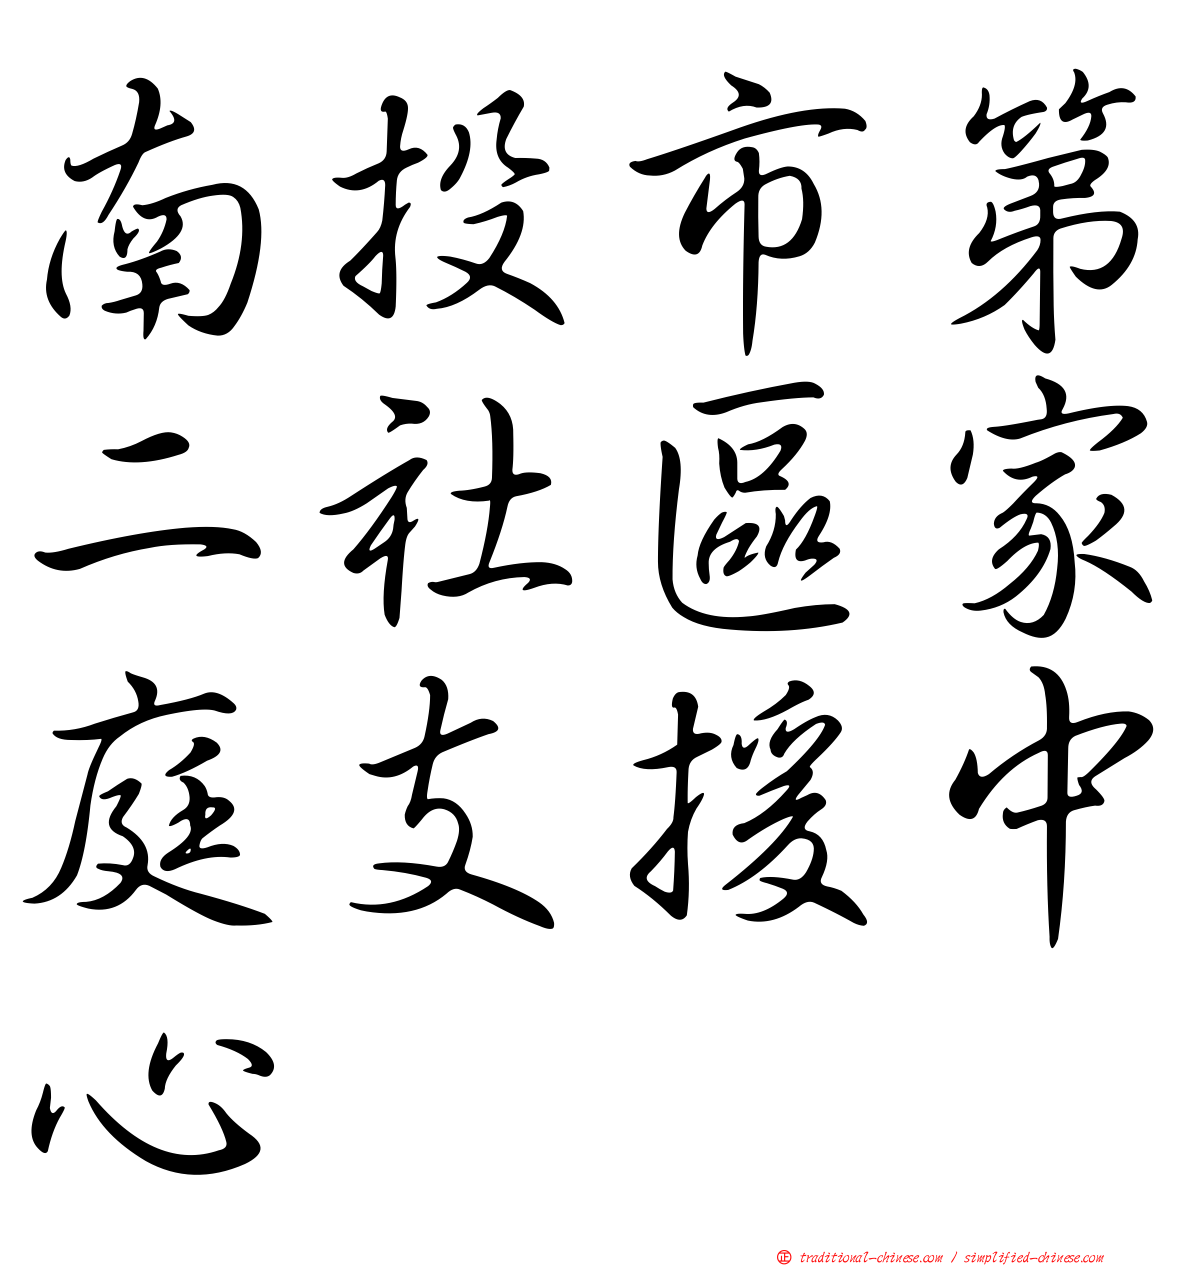 南投市第
二社區家
庭支援中
心
正 traditional-chinese.com / simplified-chinese.com